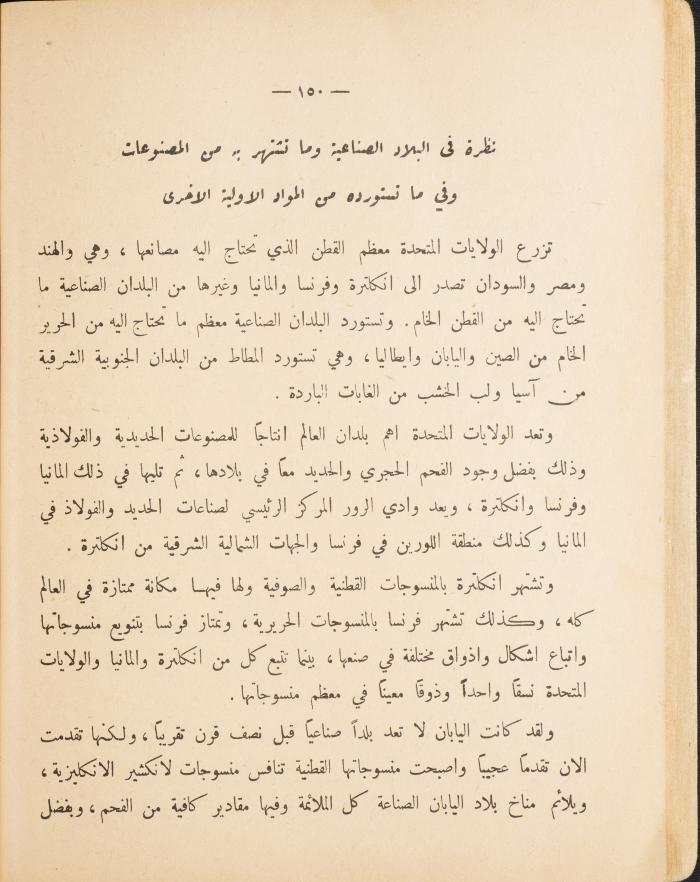 — ١٥٠ —
نظرة فى البلاد الصناعية وما تشتهر به من المصنوعات
وفي ما تستورده من المواد الاولية الاخرى
تزرع الولايات المتحدة معظم القطن الذي تحتاج اليه مصانعها ، وهي والهند
ومصر والسودان تصدر الى انكلترة وفرنسا والمانيا وغيرها من البلدان الصناعية ما
تحتاج اليه من القطن الخام . وتستورد البلدان الصناعية معظم ما تحتاج اليه من الحرير
الخام من الصين واليابان وايطاليا ، وهي تستورد المطاط من البلدان الجنوبية الشرقية
من آسيا ولب الخشب من الغابات الباردة .
وتعد الولايات المتحدة اهم بلدان العالم انتاجاً للمصنوعات الحديدية والفولاذية
وذلك بفضل وجود الفحم الحجري والحديد معاً في بلادها ، ثم تليها في ذلك المانيا
وفرنسا وانكلترة ، ويعد وادي الرور المركز الرئيسي لصناعات الحديد والفولاذ في
المانيا وكذلك منطقة اللورين في فرنسا والجهات الشمالية الشرقية من انكلترة .
وتشتهر انكلترة بالمنسوجات القطنية والصوفية ولها فيهـا مكانة ممتازة في العالم
كله ، وكذلك تشتهر فرنسا بالمنسوجات الحريرية ، وتمتاز فرنسا بتنويع منسوجاتها
واتباع اشكال واذواق مختلفة في صنعها ، بينما تتبع كل من انكلترة والمانيا والولايات
المتحدة نسقاً واحداً وذوقاً معيناً في معظم منسوجاتها .
ولقد كانت اليابان لا تعد بلداً صناعياً قبل نصف قرن تقريباً ، ولكنها تقدمت
الان تقدماً عجيباً واصبحت منسوجاتها القطنية تنافس منسوجات لانكشير الانكليزية ،
ويلائم مناخ بلاد اليابان الصناعة كل الملائمة وفيها مقادير كافية من الفحم ، وبفضل